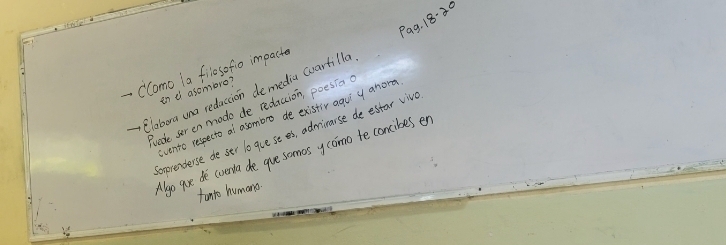 Pag. 18-20
→ ¿Como la filosofia impacta
en el asombro?
→ Elabora una redacción de media cuartilla.
Puede ser en modo de redacción, poesía o
cuento respecto al asombro de existir aquí y ahora.
Sorprenderse de ser lo que se es, admirarse de estar vivo.
Algo que dé cuenta de que somos y cómo te concibes en
tanto humano.